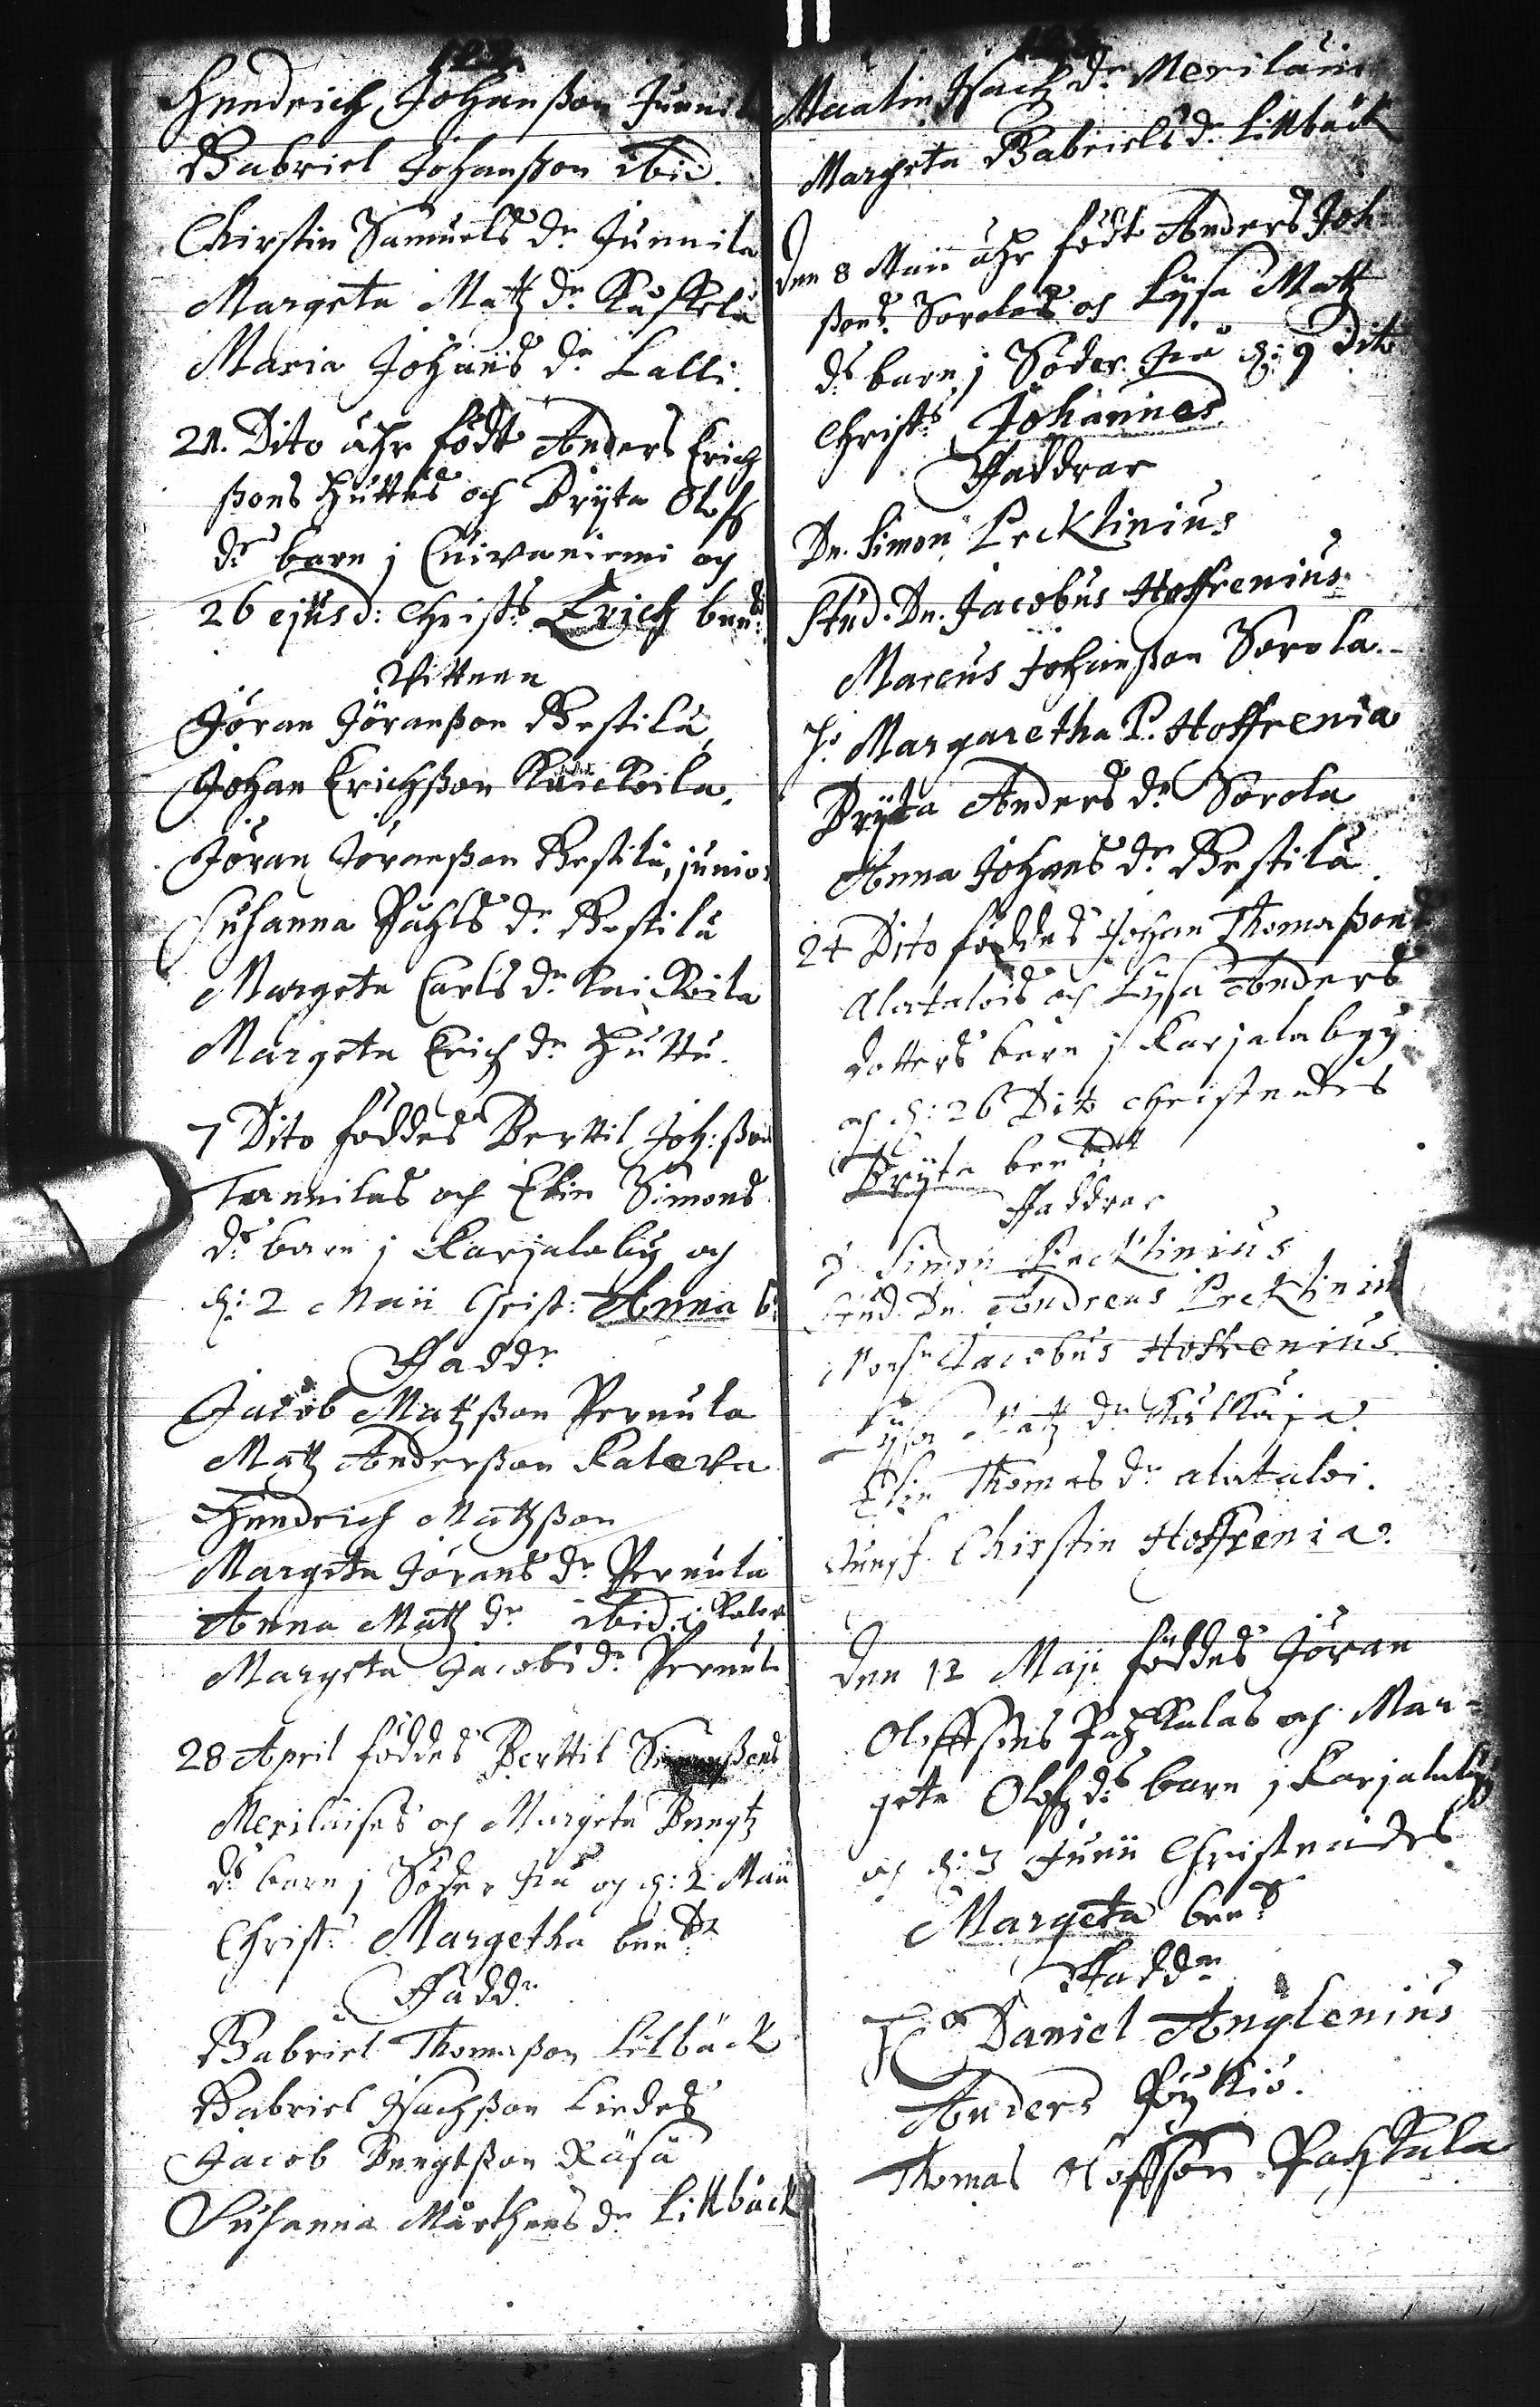 122
Hendrich Johanßon Junni
Gabriel Johanßon ibid.
Chirstin Samuels dr. Junnila
Margeta Matz dr. Kaskela
Maria Johans dr. Lalli.
21. Dito ähr födt Anders Erich
ßons Huttus och Bryta Olofz
ds. barn j Cuivaniemi och
26 ejusd: Christs. Erich ben:
Vittnen
Jöran Jöranßon Gestilä
Johan Erichßon Kaickoila.
Jöran Jöranßon Gestilä, junior
Susanna Påhls dr. Gestilä
Margeta Carls dr. Kaickoila
Margeta Erich dr. Huttu.
7 Dito föddes Berttil Joh:ßon
Tannilas och Elin Simons
ds. barn j Karjalaby och
d: 2 Maii Christ: Anna b:
Fadd.
Jacob Matzßon Pernula
Matz Anderßon Kaleva
Hendrich Mattzßon
Margeta Jörans dr. Pernula
Anna Matz dr. ibid: Kalev
Margeta Jacobs dr. Pernul
28 April föddes Berttil Simonßons
Meriläises och Margeta Bengtz
ds. barn j Söder Ijå och d: 2 Maii
Christ: Margetha ben
Fadd.
Gabriel Thomaßon Litbäck
Gabriel Isachßon Liedes
Jacob Bengtßon Räsä
Susanna Mårthens dr. Littbäck
Maalin Isachz dr. Meriläin
Margeta Gabriels dr. Littbäck
Den 8 Maii ähr födt Anders Joh
ßons Sorolas och Lysa Matz
ds barn j Söder Ijå d: 9 Dito
Christs. Johannes.
Faddrar
Dn. Simon Lecklinius
Stud. Dn. Jacobus Hoffrenius
Marcus Johanßon Sorola
H. Margaretha P. Hoffrenia
Bryta Anders dr. Sorola
Anna Johans dr. Gestilä.
24 Dito föddes Johan Thomaßons
Alatalois och Lysa Anders
dotters barn j Karjalaby
och d: 26 Dito christnades
Bryta ben
Faddrar
D. Simon Lecklinius
Stud. Dn. Andreas Lecklinius
Monsr Jacobus Hoffrenius.
Lysa Matz dr.
Elin Thomas dr. alataloi.
Jungf. Chirstin Hoffrenia.
Den 12 Maji föddes Jöran
Olofssons Pahkalas och Mar-
geta Olofz ds. barn j Karjalaby
och d: 3 Junii Christnades
Margeta ben
Fadd.
H. Daniel Anglenius
Anders Pöykiö.
Thomas Olofsson Pahkala